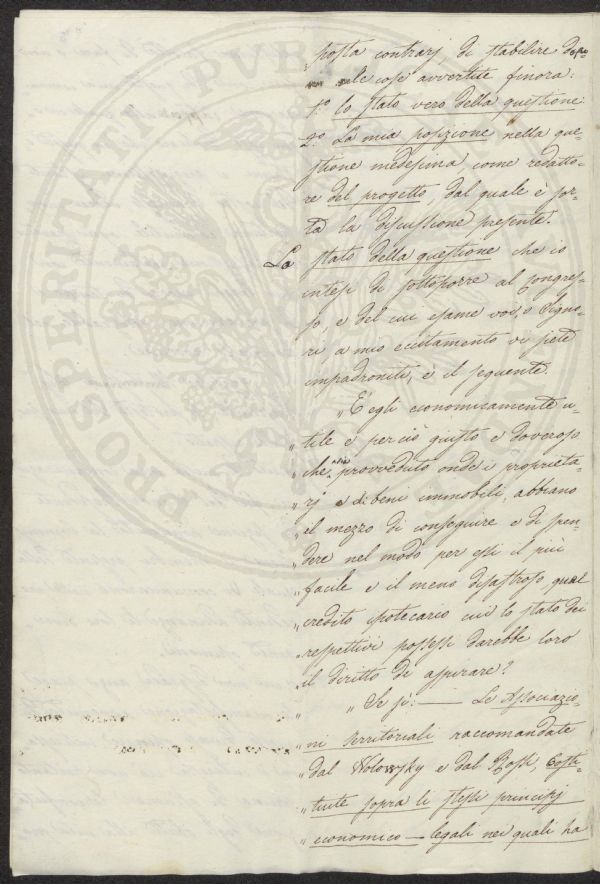 posta contrarj di stabilire dopo
le cose avvertite finora:
1.° lo stato vero della questione
2.° La mia posizione nella que-
stione medesima come redatto-
re del progetto, dal quale è sor-
ta la discussione presente.
Lo stato della questione che io
intesi di sottoporre al congres-
so, e del cui esame voi, o Signo-
ri a mio eccitamento vi siete
impadroniti, è il seguente
"È egli economicamente u-
" tile e perciò giusto e doveroso
" che sia provveduto onde i proprieta-
" rj di beni immobili, abbiano
" il mezzo di conseguire e di spen-
" dere nel modo per essi il più
" facile e il meno disastroso, quel
" credito ipotecario cui lo stato dei
" respettivi possessi darebbe loro
" il diritto di aspirare?
" "Se sì: — Le Associazio-
" ni territoriali raccomandate
" dal Wolowsky e dal Rossi, Costi-
" tuite sopra li stessi principj
" economico — legali nei quali ha
PROSPERITATI PUBL